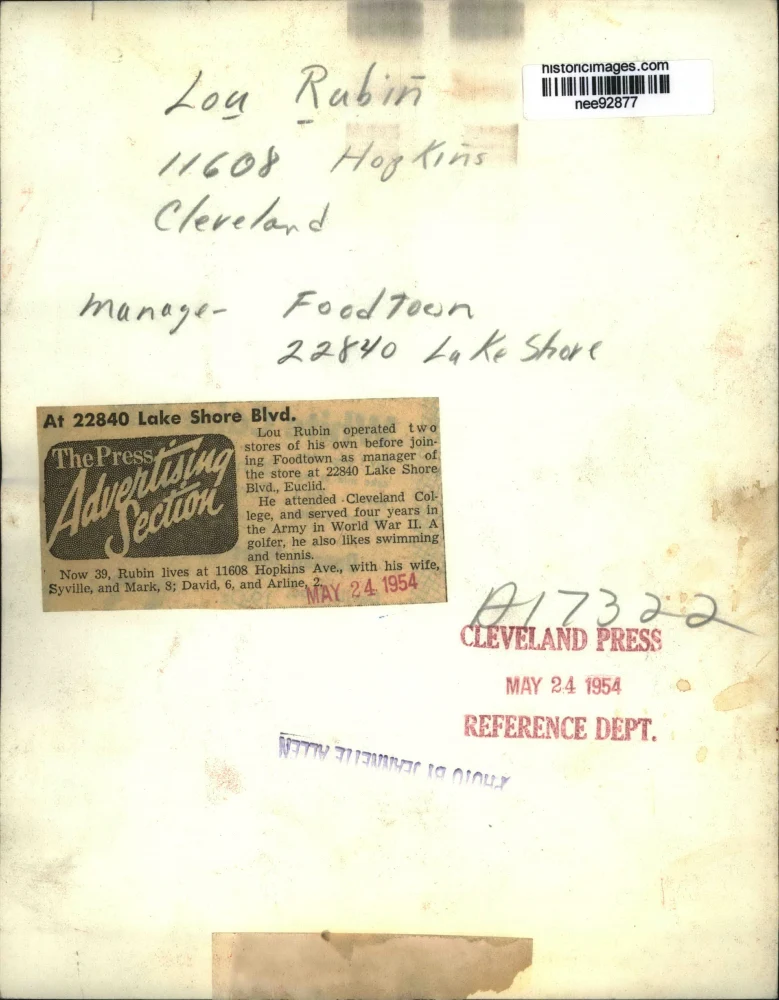 historicimages.com
nee92877
Lou Rubin
11608 Hopkins
Cleveland
Manager Foodtown
22840 Lake Shore
At 22840 Lake Shore Blvd.
The Press
Advertising
Section
Lou Rubin operated two
stores of his own before join-
ing Foodtown as manager of
the store at 22840 Lake Shore
Blvd., Euclid.
He attended Cleveland Col-
lege, and served four years in
the Army in World War II. A
golfer, he also likes swimming
and tennis.
Now 39, Rubin lives at 11608 Hopkins Ave., with his wife,
Syville, and Mark, 8; David, 6, and Arline, 2.
MAY 24 1954
A17322
CLEVELAND PRESS
MAY 24 1954
REFERENCE DEPT.
PHOTO BY JEANNETTE ALLEN